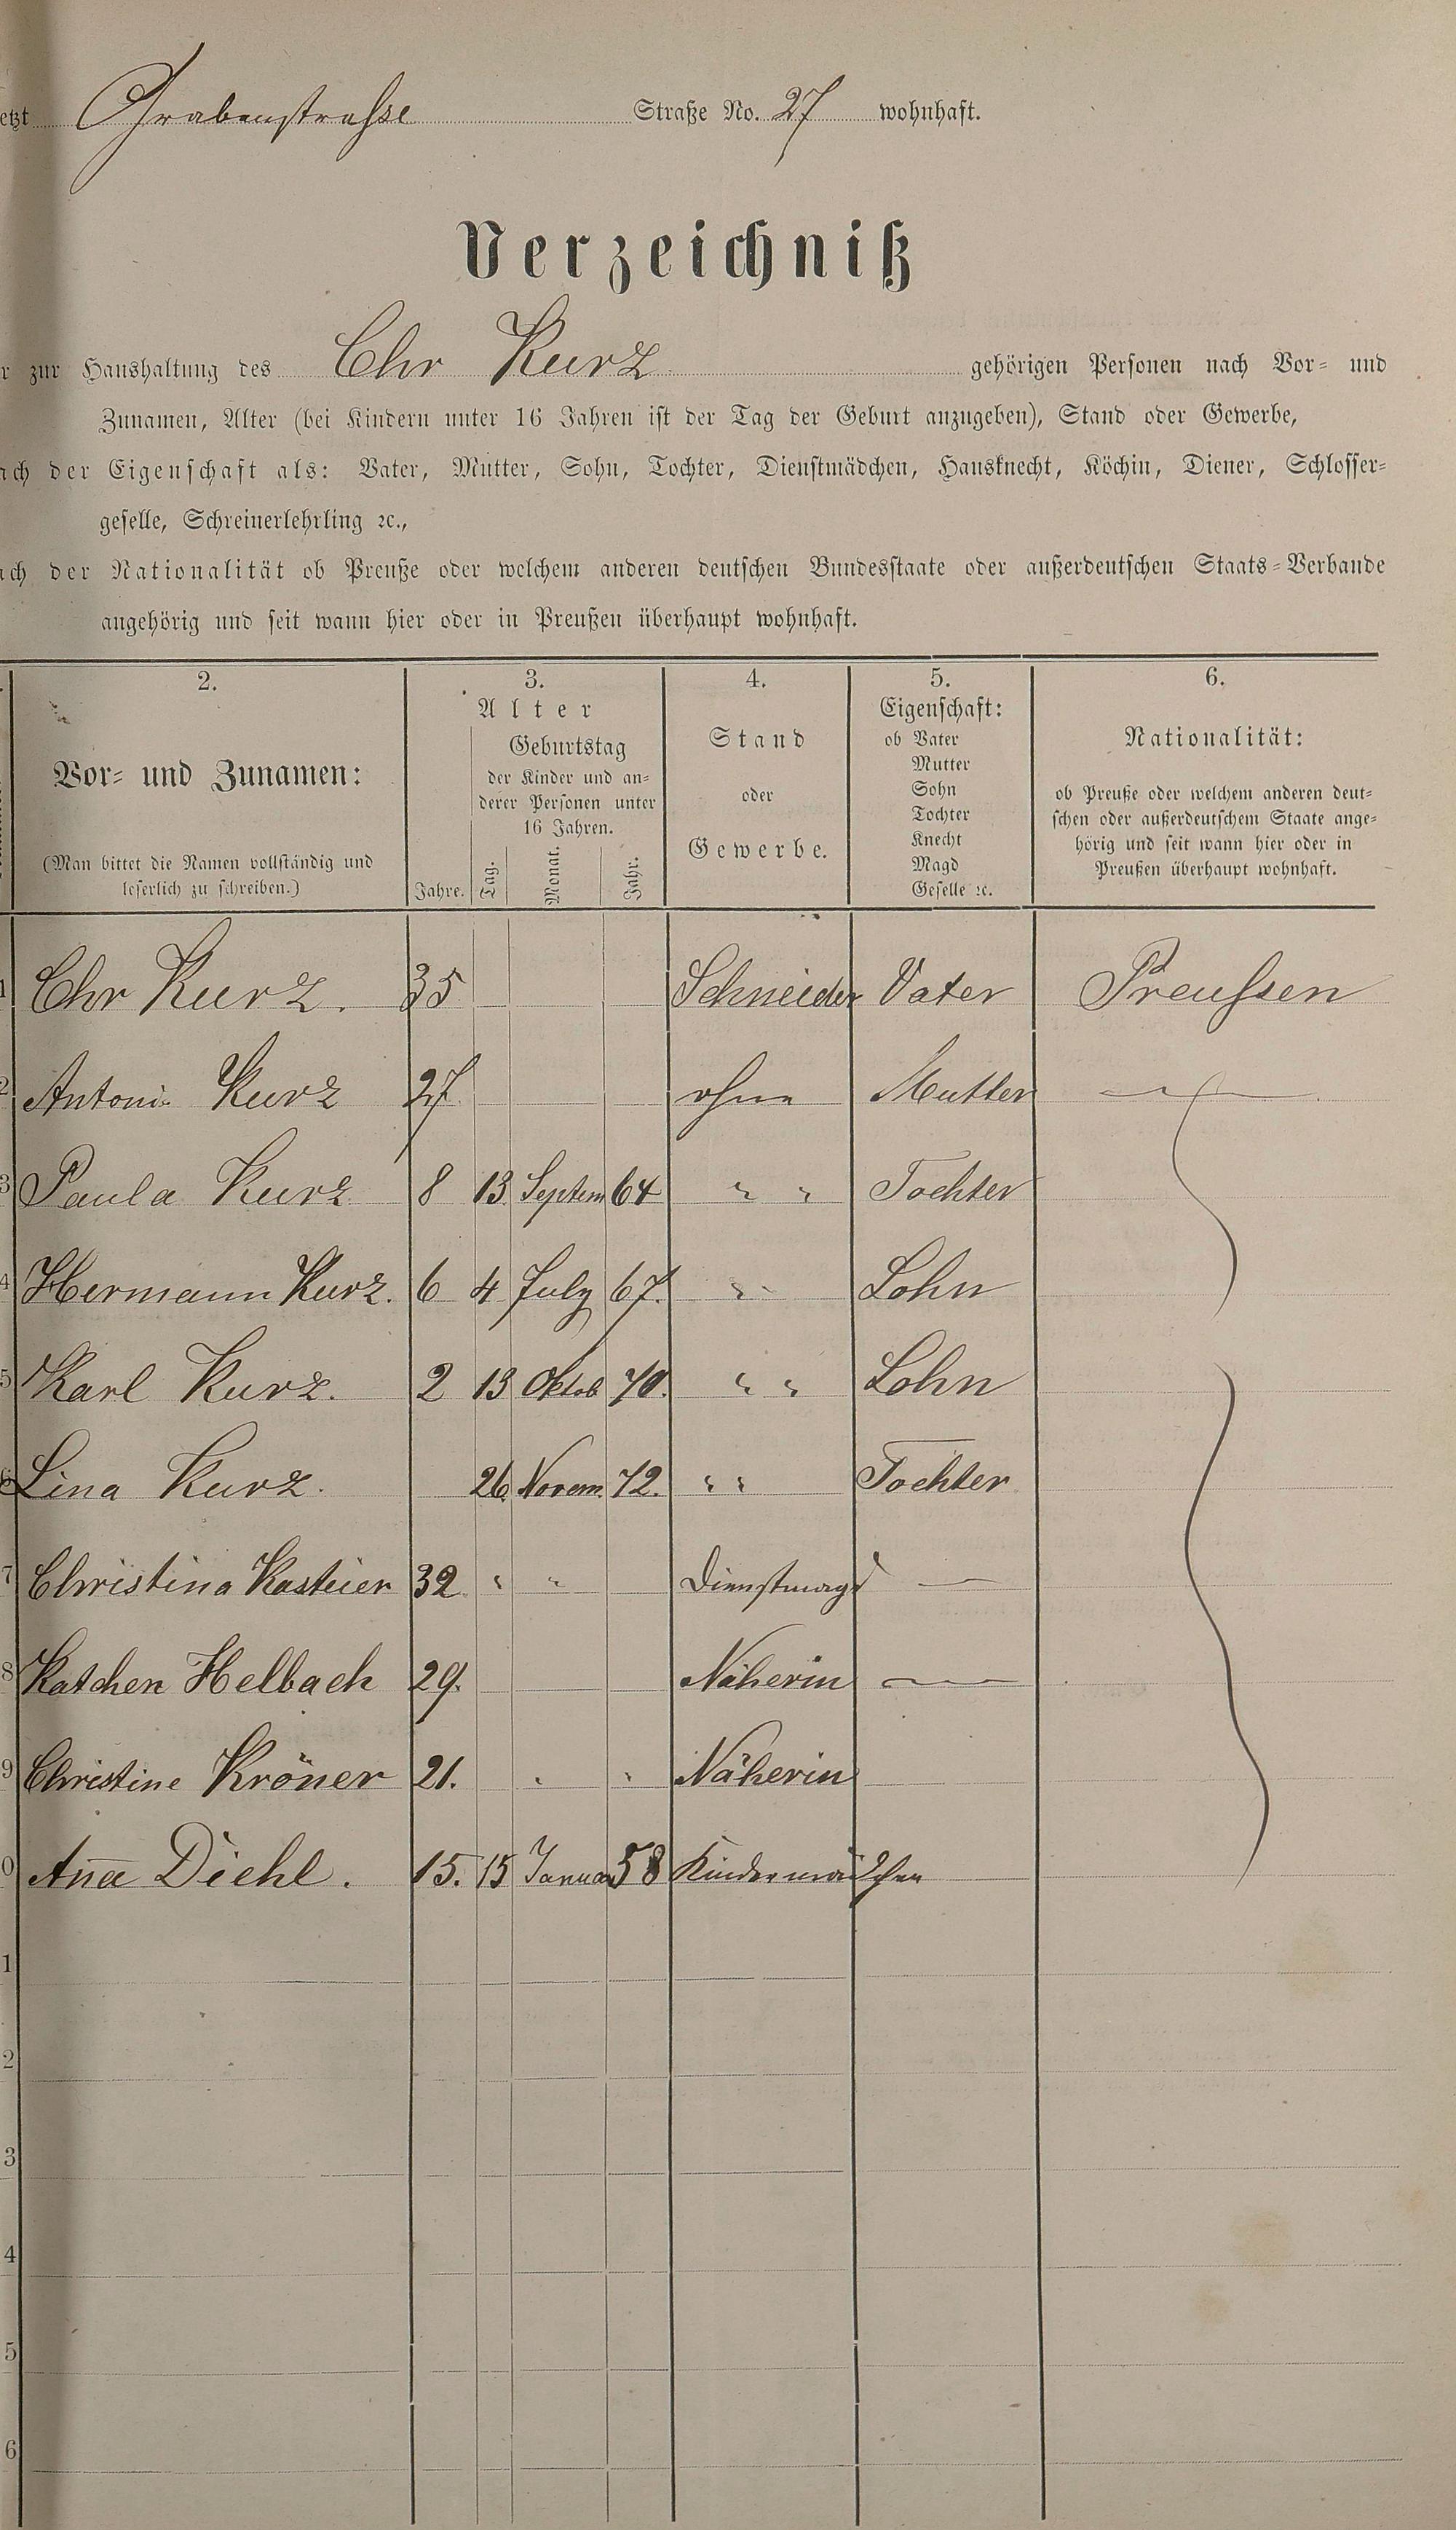 etzt Grabenstraße Straße No. 27 wohnhaft.
Verzeichniß
r zur Haushaltung des Chr Kurz gehörigen Personen nach Vor- und
Zunamen, Alter (bei Kindern unter 16 Jahren ist der Tag der Geburt anzugeben), Stand oder Gewerbe,
ach der Eigenschaft als: Vater, Mutter, Sohn, Tochter, Dienstmädchen, Hausknecht, Köchin, Diener, Schlosser-
geselle, Schreinerlehrling ꝛc.,
ach der Nationalität ob Preuße oder welchem anderen deutschen Bundesstaate oder außerdeutschen Staats-Verbande
angehörig und seit wann hier oder in Preußen überhaupt wohnhaft.
2. 3. 4. 5. 6.
Vor- und Zunamen:
(Man bittet die Namen vollständig und
leserlich zu schreiben.)
Alter
Geburtstag
der Kinder und an-
derer Personen unter
16 Jahren.
Jahre. Tag. Monat. Jahr.
Stand
oder
Gewerbe.
Eigenschaft:
ob Vater
Mutter
Sohn
Tochter
Knecht
Magd
Geselle ꝛc.
Nationalität:
ob Preuße oder welchem anderen deut-
schen oder außerdeutschem Staate ange-
hörig und seit wann hier oder in
Preußen überhaupt wohnhaft.
1 Chr Kurz. 35 Schneider Vater Preußen
2 Antoni Kurz 27 ohne Mutter —
3 Paula Kurz 8 13 Septem 64 " " Tochter
4 Hermann Kurz. 6 4 July 67. " " Sohn
5 Karl Kurz. 2 13 Oktob 70. " " Sohn
6 Lina Kurz. 26. Novem. 72. " " Tochter
7 Christina Kasteier 32 " " Dienstmagd —
8 Katchen Helbach 29. Näherin —
9 Christine Kröner 21. " " Näherin
0 An̄a Diehl. 15. 15 Januar 58 Kindermädchen
1
2
3
4
5
6